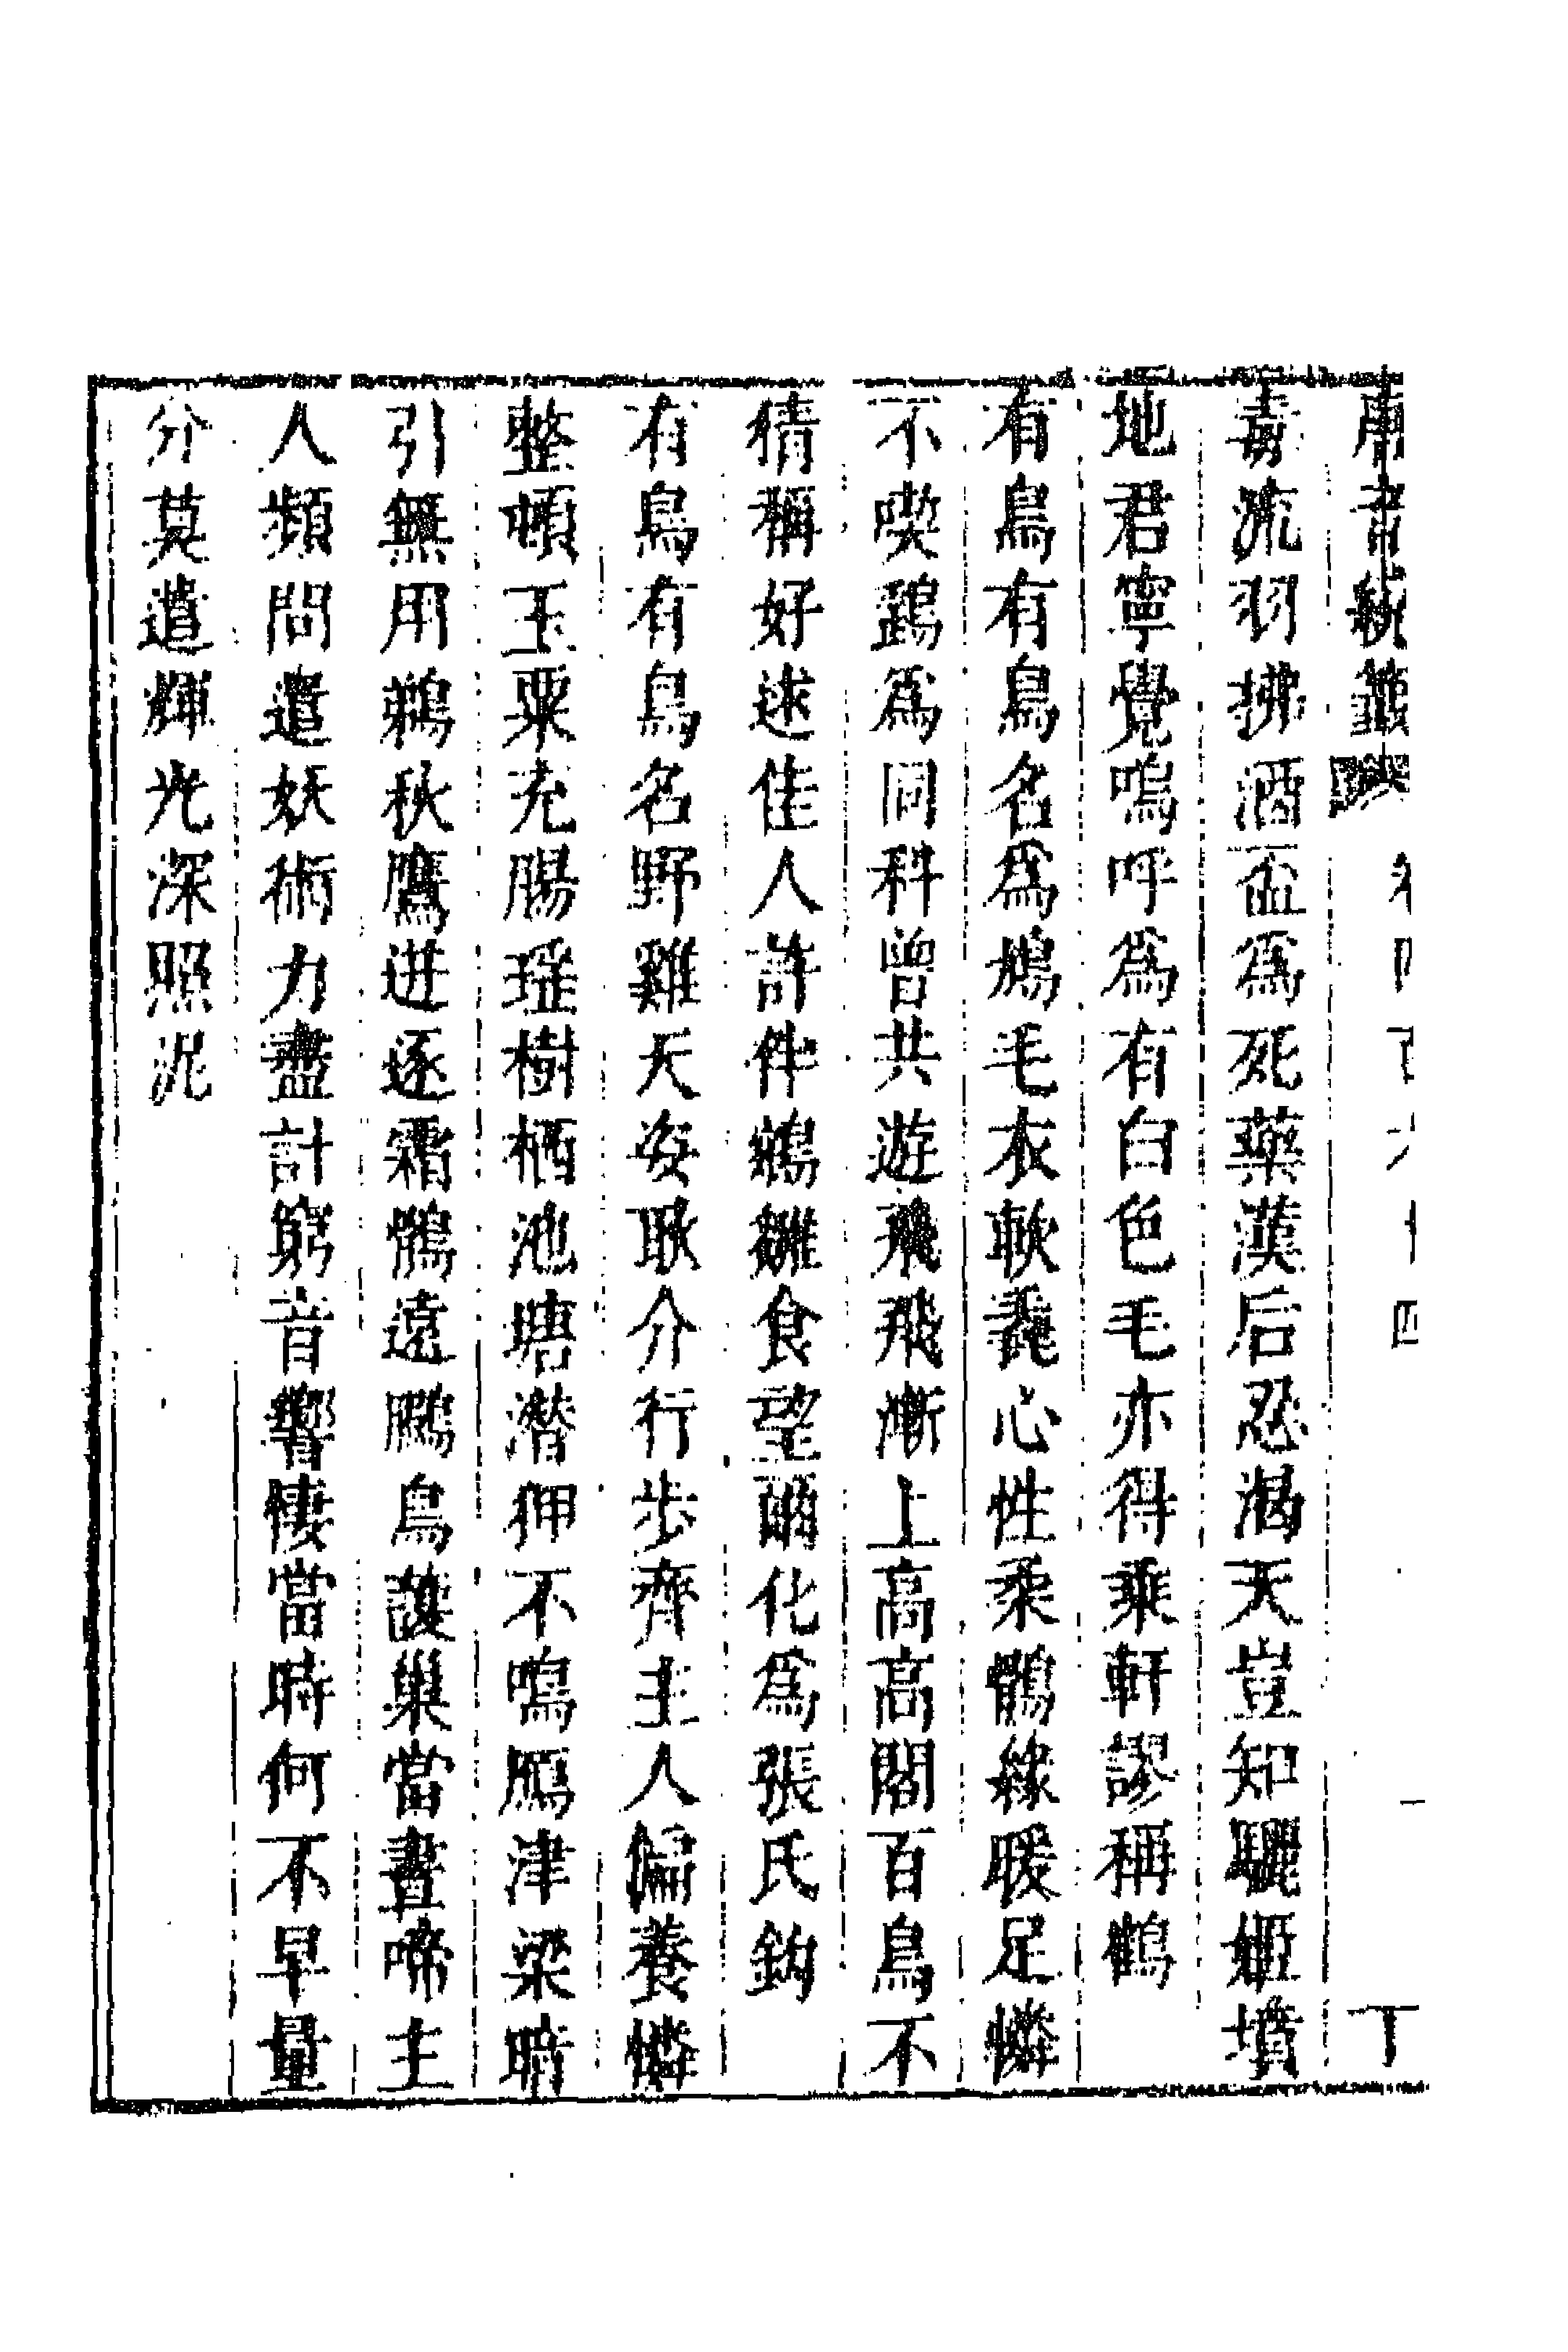 唐音統籤 卷四百六十四 一 丁
毒流羽拂酒盃爲死藥漢后忍渴天豈知驪姬墳
地君寧覺嗚呼爲有白色毛亦得乘軒謬稱鶴
有鳥有鳥名爲鳩毛衣軟毳心性柔鶻緣暖足憐
不喫鷂爲同科曾共遊飛飛漸上高高閣百鳥不
猜稱好逑佳人許伴鵷雛食望爾化爲張氏鈎
有鳥有鳥名野雞天姿耿介行步齊主人偏養憐
整頓玉粟充腸瑤樹栖池塘潛狎不鳴鴈津梁暗
引無用鵜秋鷹迸逐霜鶻遠鵩鳥護巢當晝啼主
人頻問遣妖術力盡計窮音響悽當時何不早量
分莫遣輝光深照泥